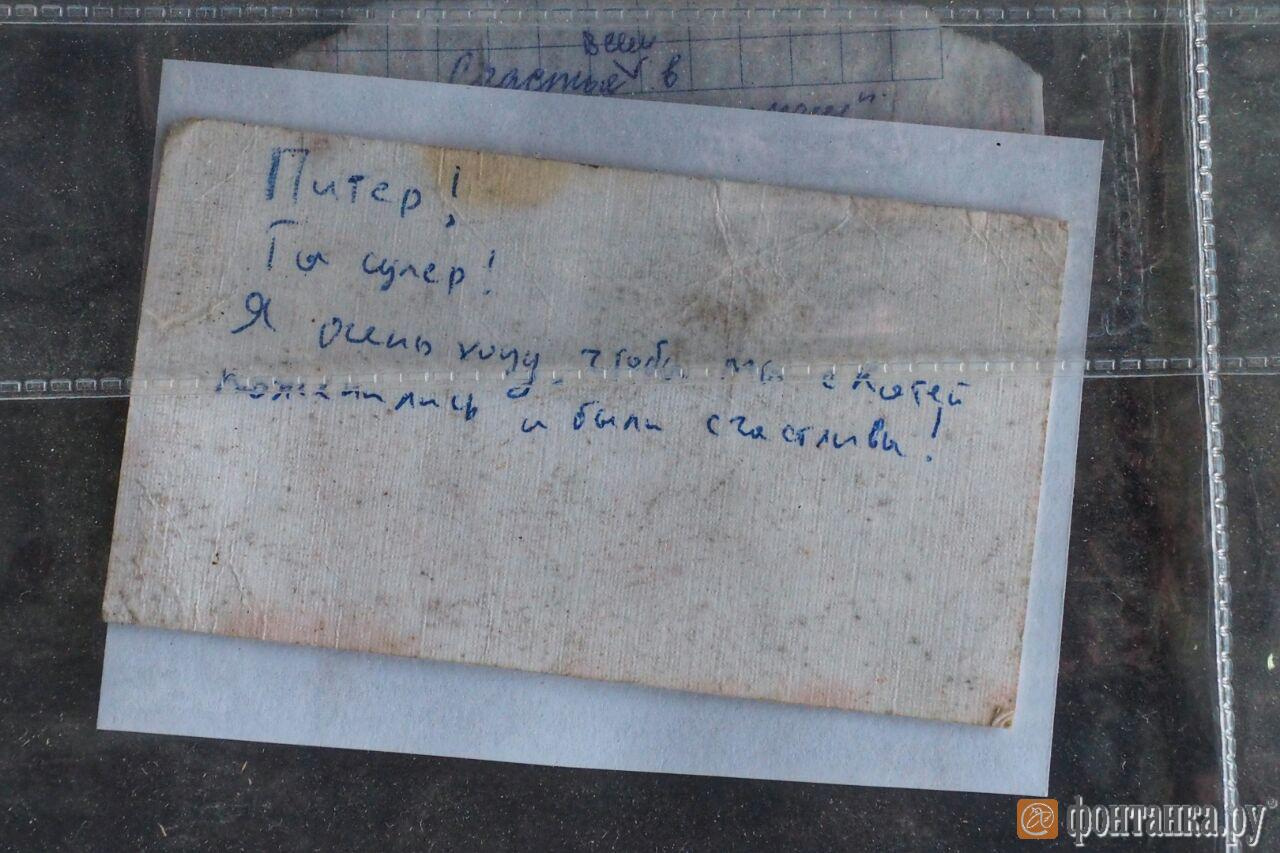 всем
Счастья в
Питер!
Ты супер!
Я очень хочу, чтобы мы с Катей
поженились и были счастливы!
фонтанка.ру